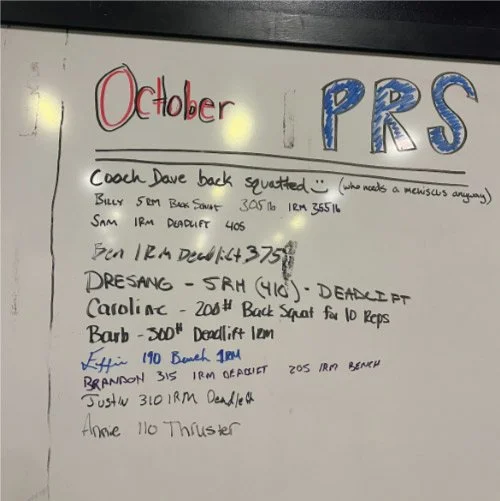 October PRS
Coach Dave back squatted :) (who needs a meniscus anyway)
BILLY 5RM BACK SQUAT 305lb 1RM 355lb
SAM 1RM DEADLIFT 405
Ben 1RM Deadlift 375
DRESANG - 5RM (410) - DEADLIFT
Caroline - 200# Back Squat for 10 Reps
Barb - 300# Deadlift 1RM
Effie 190 Bench 1RM
BRANDON 315 1RM DEADLIFT 205 1RM BENCH
Justin 310 1RM Deadlift
Annie 110 Thruster